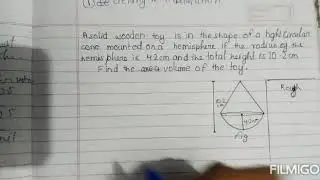 A solid wooden toy is in the shape of a right circular
cone mounted on a hemisphere if the radius of the
hemisphere is 4.2 cm and the total height is 10.2 cm
Find the volume of the toy.
Rough
10.2
cm
4.2cm
Fig
FILMIGO